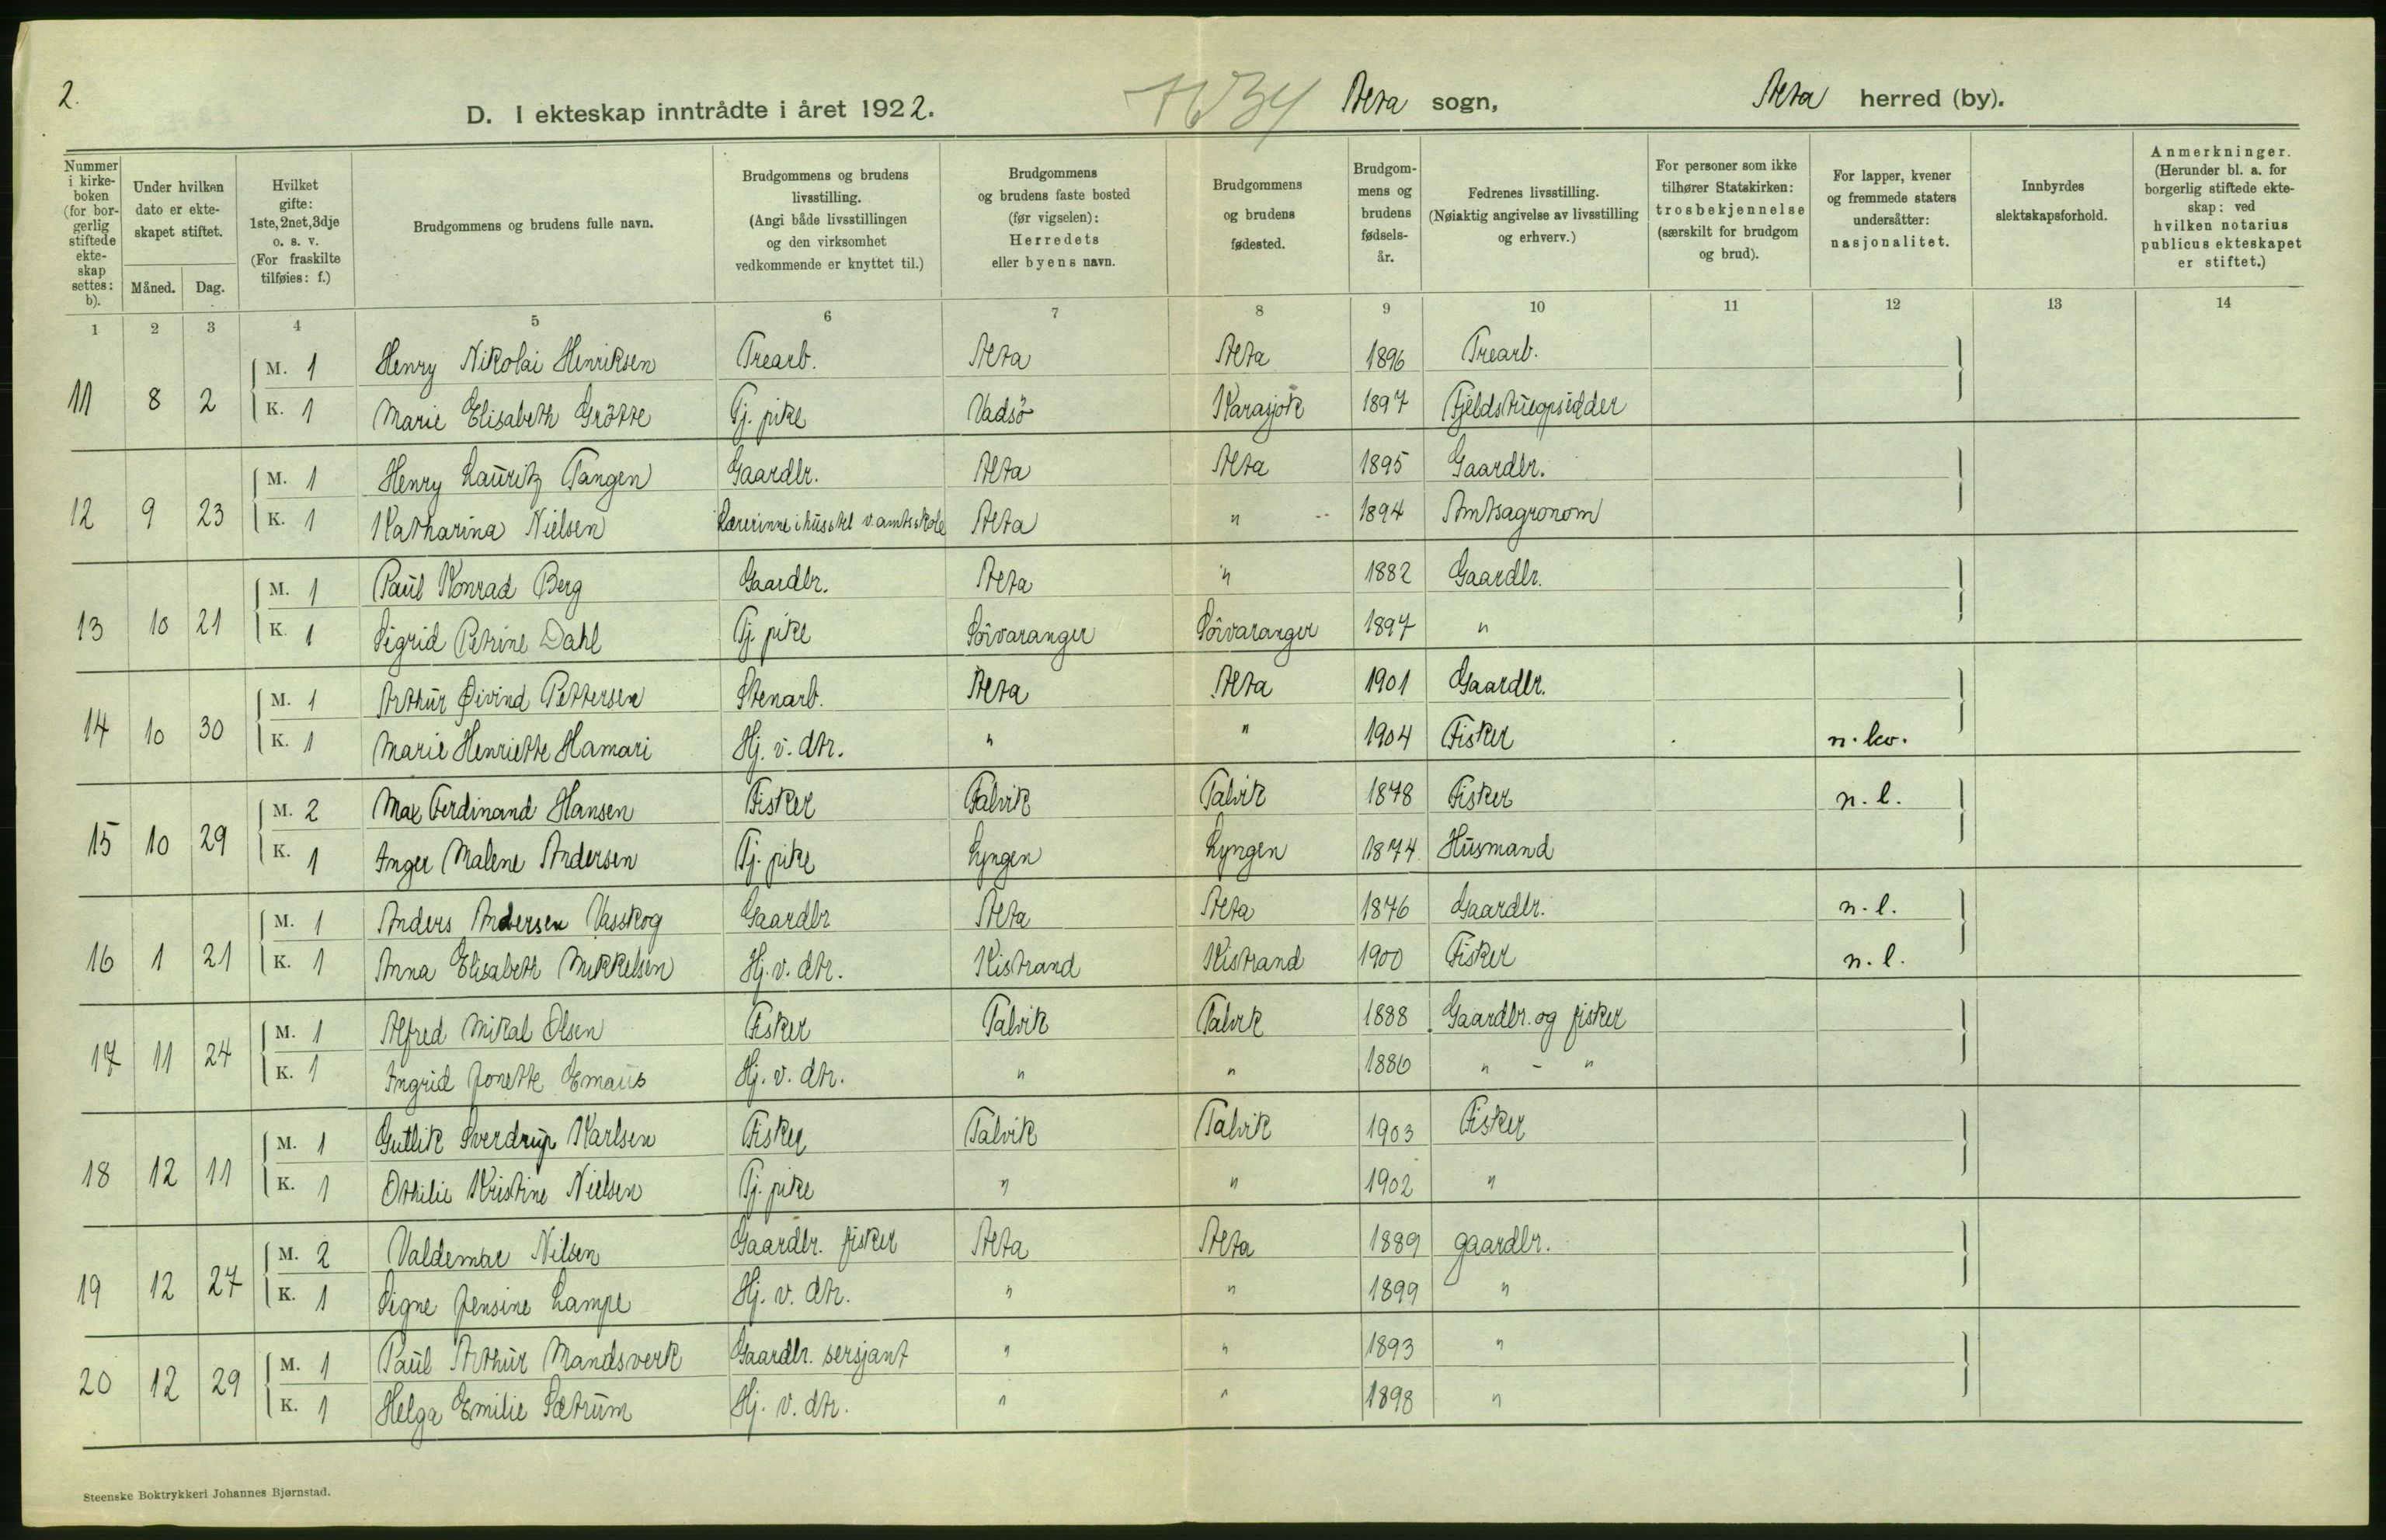 2.
D. I ekteskap inntrådte i året 1922. Alta sogn, Alta herred (by).
Nummer i kirke-boken (for bor-gerlig stiftede ekte-skap settes: b).
Under hvilken dato er ekte-skapet stiftet.
Måned. Dag.
Hvilket gifte: 1ste, 2net, 3dje o. s. v. (For fraskilte tilføies: f.)
Brudgommens og brudens fulle navn.
Brudgommens og brudens livsstilling. (Angi både livsstillingen og den virksomhet vedkommende er knyttet til.)
Brudgommens og brudens faste bosted (før vigselen): Herredets eller byens navn.
Brudgommens og brudens fødested.
Brudgom-mens og brudens fødsels-år.
Fedrenes livsstilling. (Nøiaktig angivelse av livsstilling og erhverv.)
For personer som ikke tilhører Statskirken: trosbekjennelse (særskilt for brudgom og brud).
For lapper, kvener og fremmede staters undersåtter: nasjonalitet.
Innbyrdes slektskapsforhold.
Anmerkninger. (Herunder bl. a. for borgerlig stiftede ekte-skap: ved hvilken notarius publicus ekteskapet er stiftet.)
1 2 3 4 5 6 7 8 9 10 11 12 13 14
M. 1 Henry Nikolai Henriksen Trearb. Alta Alta 1896 Trearb.
11 8 2
K. 1 Marie Elisabeth Grötte Tj. pike Vadsö Karasjok 1897
M. 1 Henry Lauritz Tangen Gaardbr. Alta Alta 1895 Gaardbr.
12 9 23
K. 1 Katharina Nielsen Lærerinne i husstel v. amtsskole Alta " 1894 Amtsagronom
M. 1 Paul Konrad Berg Gaardbr. Alta " 1882 Gaardbr.
13 10 21
K. 1 Sigrid Petrine Dahl Tj pike Sörvaranger Sörvaranger 1897 "
M. 1 Arthur Øivind Pettersen Stenarb. Alta Alta 1901 Gaardbr.
14 10 30
K. 1 Marie Henriette Hamari Hj. v. dtr. " " 1904 Fisker n. kv.
M. 2 Max Ferdinand Hansen Fisker Talvik Talvik 1878 Fisker n. l.
15 10 29
K. 1 Inger Malene Andersen Tj. pike Lyngen Lyngen 1874 Husmand
M. 1 Anders Andersen Vasskog Gaardbr Alta Alta 1876 Gaardbr. n. l.
16 1 21
K. 1 Anna Elisabeth Mikkelsen Hj. v. dtr. Kistrand Kistrand 1900 Fisker n. l.
M. 1 Alfred Mikal Olsen Fisker Talvik Talvik 1888 Gaardbr. og fisker
17 11 24
K. 1 Ingrid Jonette Emaus Hj. v. dtr. " " 1886 " - "
M. 1 Gutlik Sverdrup Karlsen Fisker Talvik Talvik 1903 Fisker
18 12 11
K. 1 Othilie Kristine Nielsen Tj. pike " " 1902 "
M. 2 Valdemar Nilsen Gaardbr. fisker Alta Alta 1889 gaardbr.
19 12 27
K. 1 Signe Jensine Lampe Hj. v. dtr. " " 1899 "
M. 1 Paul Arthur Mandsverk Gaardbr. sersjant " " 1893 "
20 12 29
K. 1 Helga Emilie Sætrum Hj. v. dtr. " " 1898 "
Steenske Boktrykkeri Johannes Bjørnstad.